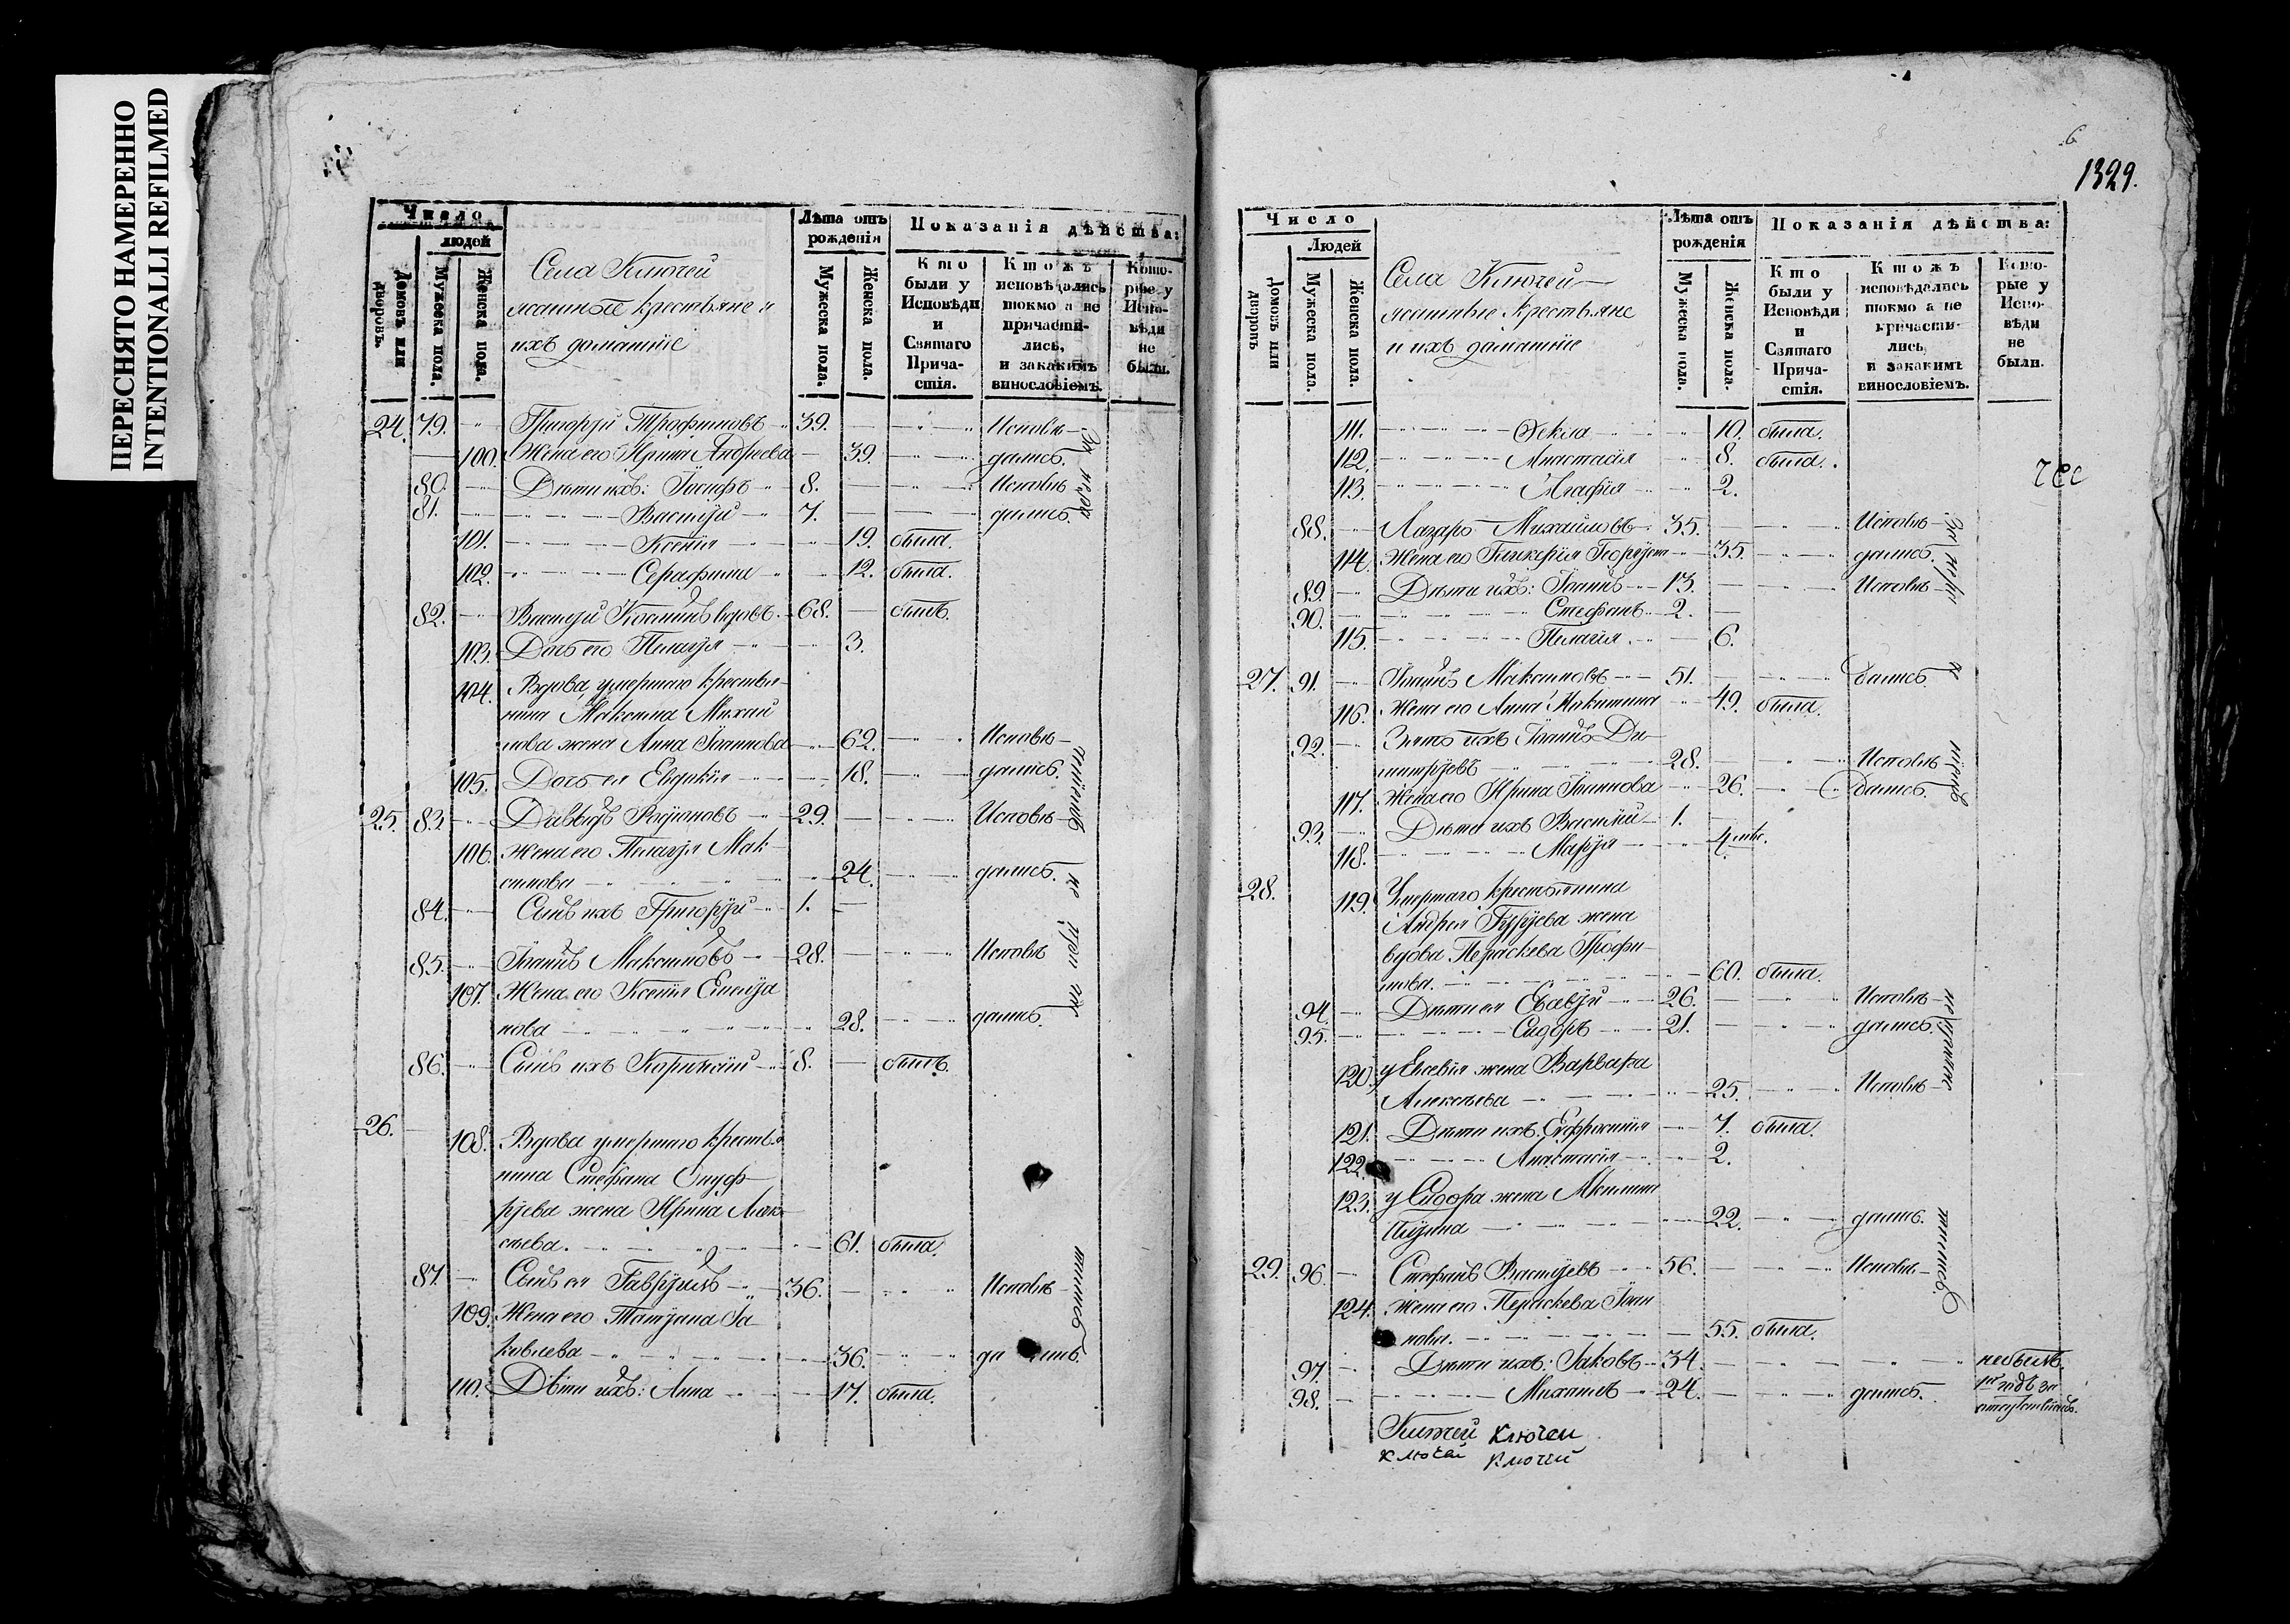 ПЕРЕСНЯТО НАМЕРЕННО
INTENTIONALLI REFILMED
Число
Домовъ или дворовъ.
людей
Мужеска пола.
Женска пола.
Села Ключей
ясашные крестьяне и
ихъ домашніе
Лѣта отъ рожденія
Мужеска пола.
Женска пола.
Показанія дѣйства:
Кто были у Исповѣди и Святаго Причастія.
Кто жъ исповѣдались токмо а не причастились, и за какимъ винословіемъ.
Которые у Исповѣди не были.
24. 79. Григорій Трофимовъ 39. Исповѣ-
100. Жена его Ирина Андреева 39. дались.
80. Дѣти ихъ: Іосифъ 8. Исповѣ
81. Василій 7. дались.
101. Ксенія 19. была.
102. Серафима 12. была.
82. Василій Косминъ вдовъ. 68. былъ.
103. Дочь его Пелагія 3.
104. Вдова, умершаго крестья-
нина Максима Михай
лова жена Анна Іоаннова 62. Исповѣ-
105. Дочь ея Евдокія 18. дались.
25. 83. Давыдъ Родіоновъ 29. Исповѣ-
106. Жена его Пелагія Мак
симова 24. дались.
84. Сынъ ихъ Григорій 1.
85. Іоаннъ Максимовъ 28. Исповѣ
107. Жена его Ксенія Емелія
нова 28. дались.
86. Сынъ ихъ Корнилій 8. былъ.
26. 108. Вдова умершаго крестья
нина Стефана Онуф-
ріева жена Ирина Алек-
сѣева. 61. была.
87. Сынъ ея Гавріилъ 36. Исповѣ-
109. Жена его Татіана Іа
ковлева 36. да лись.
110. Дѣти ихъ: Анна 17. была.
6
1329.
Число
Домовъ или дворовъ
Людей
Мужеска пола.
Женска пола.
Села Ключей
ясашные крестьяне
и ихъ домашніе
Лѣта отъ рожденія
Мужеска пола.
Женска пола.
Показанія дѣйства:
Кто были у Исповѣди и Святаго Причастія.
Кто жъ исповѣдались токмо а не причастились, и за какимъ винословіемъ.
Которые у Исповѣди не были.
111. Ѳекла 10. была.
112. Анастасія 8. была.
113. Агафія 2.
88. Лазарь Михайловъ 35. Исповѣ-
114. Жена его Гликерія 35. дались.
89. Дѣти ихъ: Іоаннъ 13. Исповѣ-
90. Стефанъ 2.
115. Пелагія. 6.
27. 91. Іоаннъ Максимовъ 51. дались.
116. Жена его Анна Никитина 49. была.
92. Зять ихъ Іоаннъ Ди-
митріевъ 28. Исповѣ
117. Жена его Ирина Іоаннова 26. дались.
93. Дѣти ихъ Василій 1.
118. Марія 4 мѣ.
28. 119. Умершаго крестьянина
Андрея жена
вдова Параскева Трофи-
мова. 60. была.
94. Дѣти ея Евсевій 26. Исповѣ-
95. Сидоръ 21. дались.
120. у Евсевія жена Варвара
Алексѣева 25. Исповѣ-
121. Дѣти ихъ: Евфросинія 7. была.
122. Анастасія 2.
123. у Сидора жена Акилина
22. дались.
29. 96. Стефанъ Василіевъ 56. Исповѣ-
124. Жена его Параскева Іоан
нова. 55. была.
97. Дѣти ихъ: Іаковъ 34. небылъ.
98. Михаилъ 24. дались. 1й годъ за
Ключей Ключеи
Ключей Ключей